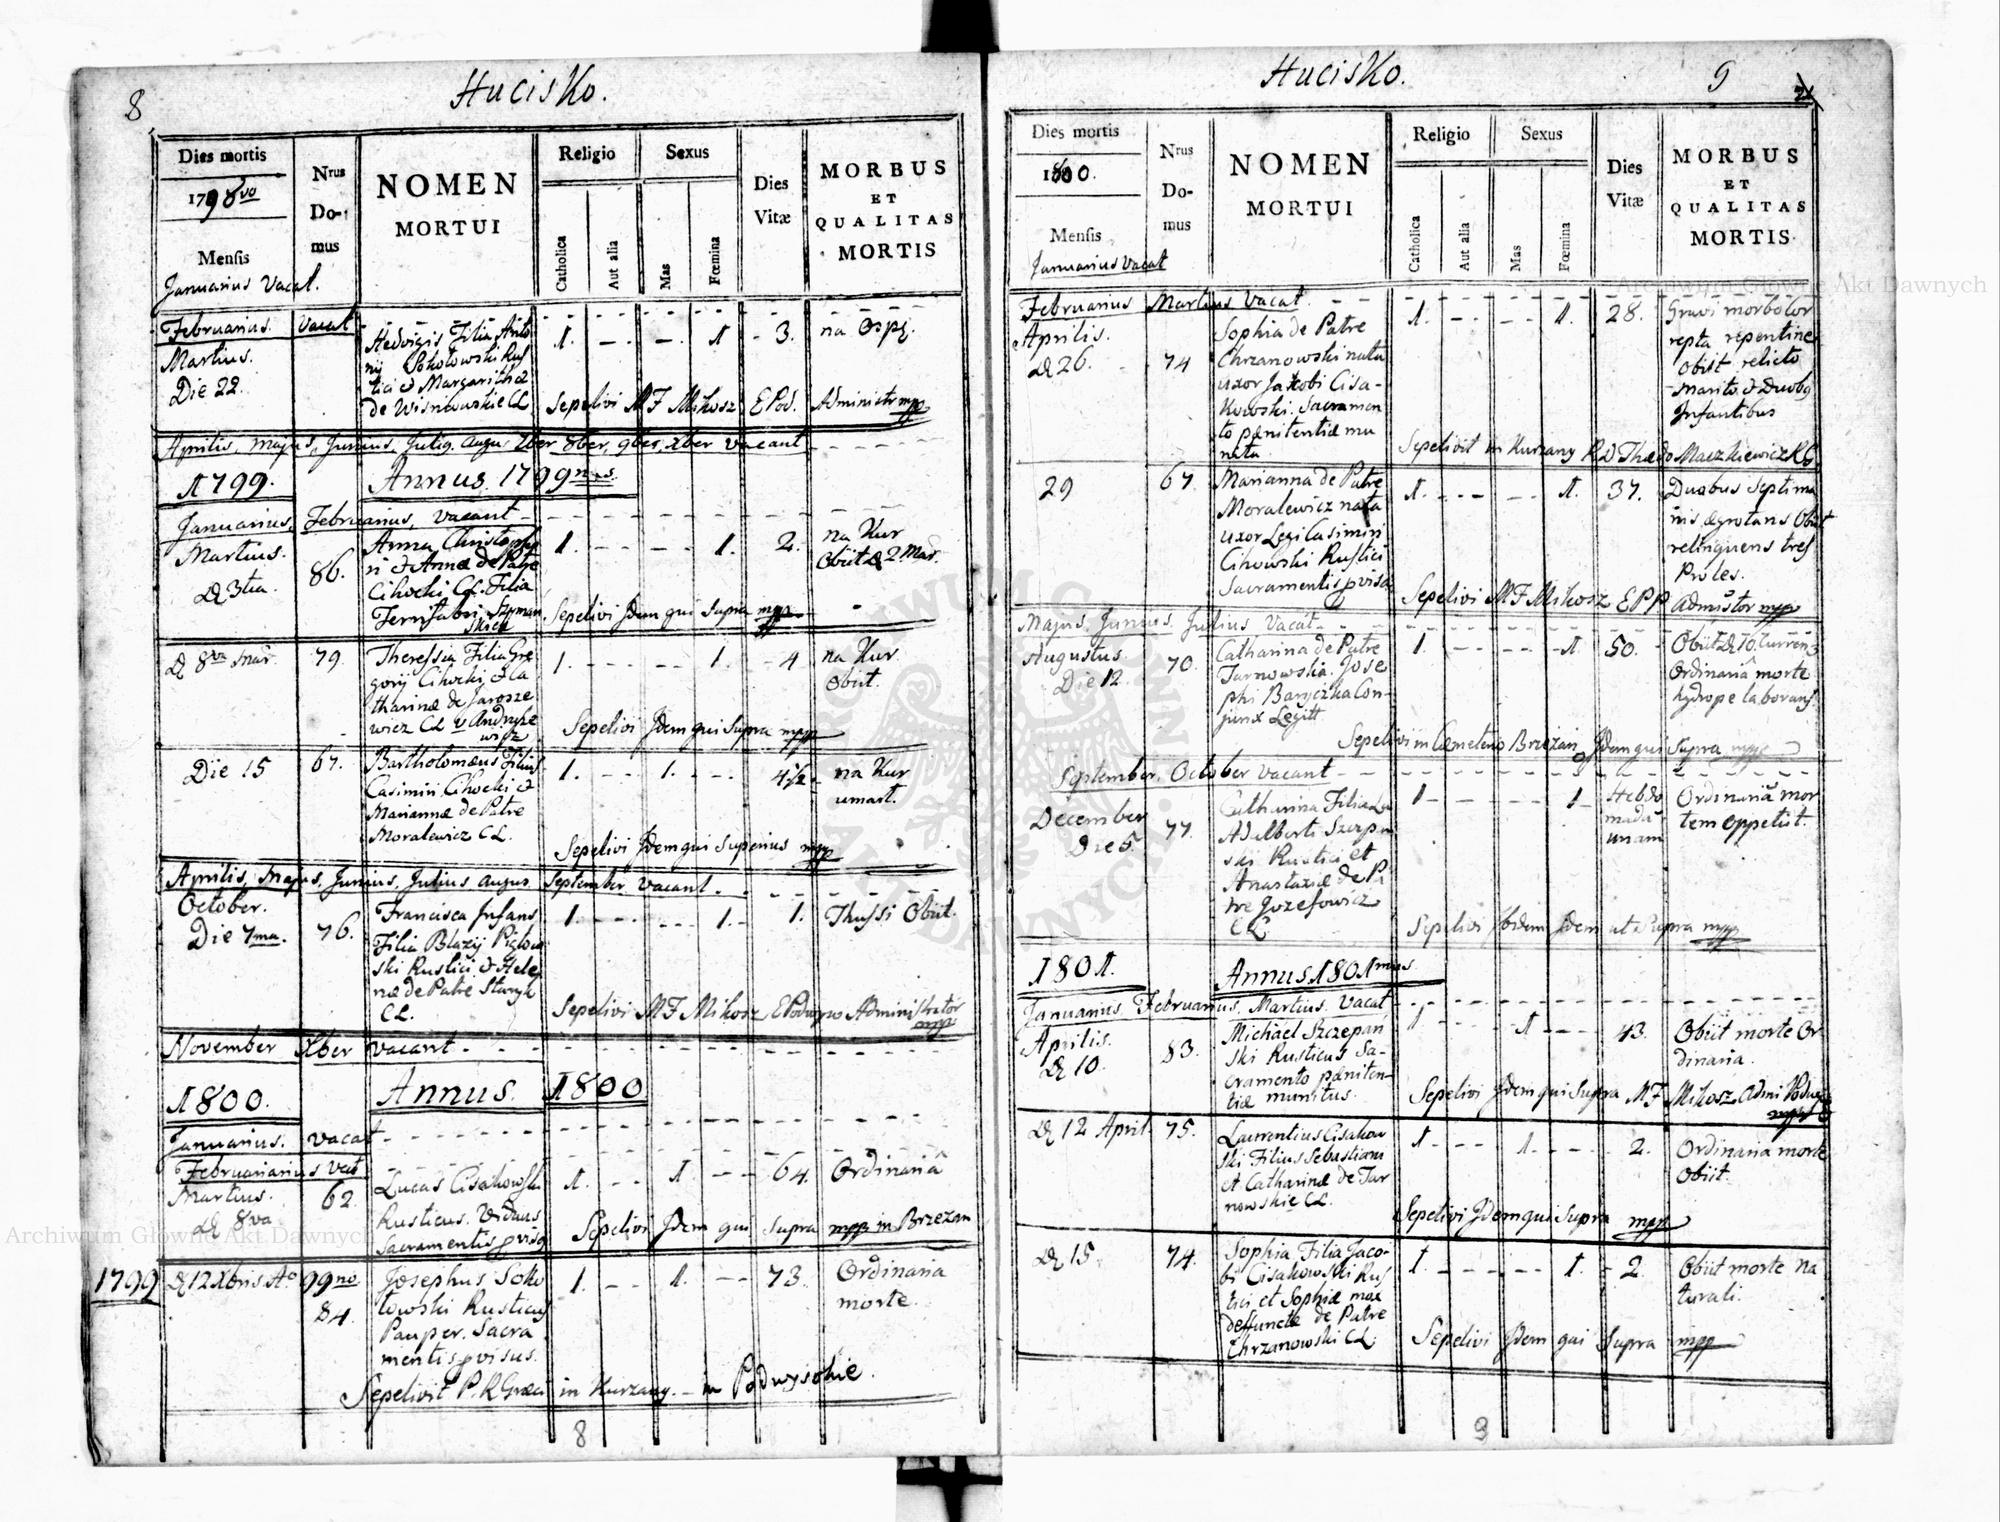 8
Hucisko.
Dies mortis
1798vo
Mensis
Januarius Vacat.
Nrus
Do-
mus
NOMEN
MORTUI
Religio
Catholica
Aut alia
Sexus
Mas
Fœmina
Dies
Vitæ
MORBUS
ET
QUALITAS
MORTIS
Februarius. Vacat
Martius.
Die 22.
Hedvigis Filia Anto
nij Sokołowski Rus
tici et Margarithæ
de Wisniowskie CL
1. - - 1 - 3. na Ospę.
Sepelivi MF Mikosz EPod. Administr mpp
Aprilis, Majus, Junius, Julig. Augu. 7ber 8ber, 9ber, Xber vacant
1799. Annus. 1799nus.
Januarius, Februarius, vacant
Martius.
D 3tia
86.
Anna Christopho
ri et Annæ de Patre
Cihocki CL. Filia
Ferrifabri Szyman
skich
1. - - - - 1. 2. na Kur
Obiit D 2 Mar.
Sepelivi Idem qui Supra mpp
D 8va Mar. 79.
Theressia Filia Gre
gorij Cihocki, et Ca
tharinæ de Jarosze
wicz CL v Andryke
wicz
1. - - - - 1. - 4 na Kur
Obiit.
Sepelivi Idem qui Supra mpp
Die 15 67.
Bartholomæus Filius
Casimiri Cihocki et
Mariannæ de Patre
Moralewicz CL.
1. - - 1. - - 4½ - na Kur
umart.
Sepelivi Idem qui Superius mpp
Aprilis, Majus, Junius, Julius, Augus. September vacant.
October.
Die 7ma. 76.
Francisca Infans
Filia Blazij Piglow
ski Rustici et Hele
næ de Patre Staryk
CL.
1. - - - 1. - 1. Thussi Obiit.
Sepelivi MF Mikosz EPodwysz Administrator
mpp
November Xber vacant
1800. Annus. 1800
Januarius. vacat
Februarianius Vacat
Martius.
D 8va
62.
Lucas Cisakowski
Rusticus. Viduus
Sacramentis pvisg
1. - - 1 - - 64. Ordinariâ
Sepelivi Idem qui Supra mpp in Brzezan
1799 D 12 Xbris Aº 99no
84.
Josephus Soko
łowski Rusticus
Pauper. Sacra
mentis pvisus.
1. - - 1. - - 73. Ordinaria
morte.
Sepelivit P. R Græci in Kurzany. - in Podwysokie.
8
Hucisko.
9
21
Dies mortis
1800.
Mensis
Januarius Vacat
Nrus
Do-
mus
NOMEN
MORTUI
Religio
Catholica
Aut alia
Sexus
Mas
Fœmina
Dies
Vitæ
MORBUS
ET
QUALITAS
MORTIS
Februarius Martius Vacat
Aprilis.
D 26. 74
Sophia de Patre
Chrzanowski nata
uxor Jakobi Cisa-
kowski. Sacramen
to pænitentiæ mu
nata
1. - - - 1. 28. Gravi morbo cor
repta repentine
obiit relicto
Marito et Duobg
Infantibus
Sepelivit in Kurzany R D Thædo Maczkiewicz RG
29 67.
Marianna de Patre
Moralewicz nata
uxor Legi Casimiri
Cihowski Rustici
Sacramentis pvisa
1. - - - - 1. 37. Duabus Septima
nis ægrotans Obiit
relinquens tres
Proles.
Sepelivi MF Mikosz EPP Admistor mpp
Majus, Junius, Julius Vacat
Augustus.
Die 12. 70.
Catharina de Patre
Tarnowskia. Jose
phi Baryczka Con-
junx Legitt
1. - - - - 1 50. Obiit D 10. Curren
Ordinariâ morte
hydrope laborans
Sepelivi in Cæmeterio Brzezan Idem qui Supra mpp
September, October vacant
December
Die 5. 77.
Catharina Filia La
Adalberti Szczepa
skij Rustici et
Anastaxiæ de Pa
tre Jozefowicz
CL.
1 - - - - 1 Hebdo
mada
unam
Ordinariâ mor
tem oppetiit.
Sepelivi Ibidem Idem ut Supra mpp
1801. Annus. 1801mus
Januarius, Februarius, Martius. Vacat
Aprilis.
D 10. 83.
Michael Szczepan
ski Rusticus Sa-
cramento pæniten-
tiæ munitus.
1 - - 1 - - 43. Obiit morte Or
dinaria.
Sepelivi Idem qui Supra MF Mikosz Admi Podwy
mpp
D 12 April. 75.
Laurentius Cisakow
ski Filius Sebastiani
et Catharinæ de Tar
nowskie CL.
1 - - - 1. - - 2. Ordinaria morte
Obiit.
Sepelivi Idem qui Supra mpp
D 15 74.
Sophia Filia Jaco-
bi Cisakowski Rus
tici et Sophiæ mox
deffunctæ de Patre
Chrzanowski CL.
1. - - - - 1. - 2. Obiit morte na
turali.
Sepelivi Idem qui Supra mpp
9
Archiwum Główne Akt Dawnych
Archiwum Główne Akt Dawnych
ARCHIWUM GŁÓWNE AKT DAWNYCH